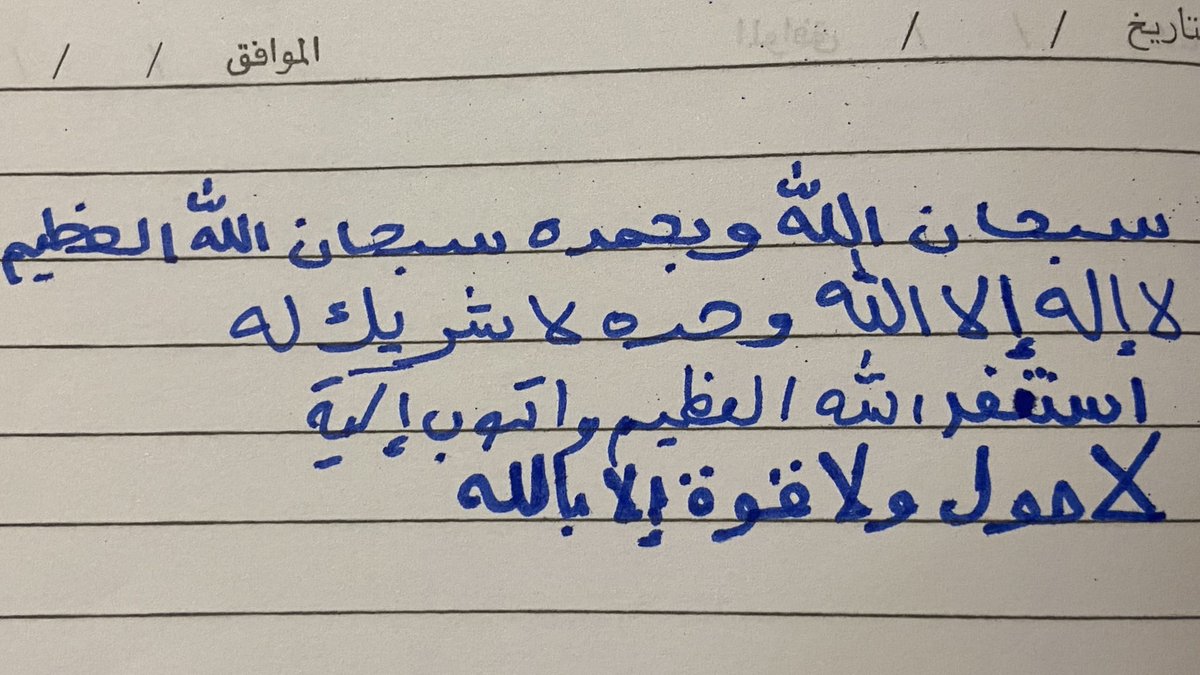 التاريخ / / الموافق / /
سبحان الله وبحمده سبحان الله العظيم
لا إله إلا الله وحده لا شريك له
استغفر الله العظيم واتوب إلية
لا حول ولا قوة إلا بالله